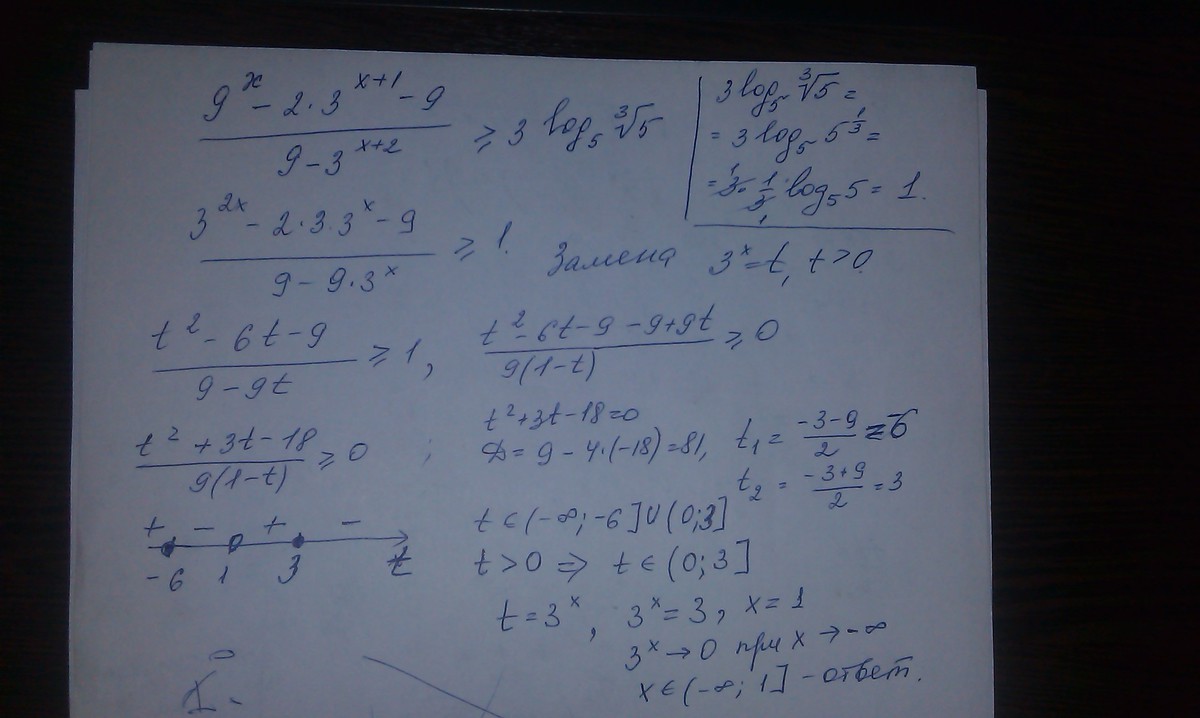 (9^x - 2·3^(x+1) - 9) / (9 - 3^(x+2)) ≥ 3 log₅ ∛5
3 log₅ ∛5 =
= 3 log₅ 5^(1/3) =
= 3· 1/3 log₅ 5 = 1.
(3^(2x) - 2·3·3^x - 9) / (9 - 9·3^x) ≥ 1.
Замена 3^x = t, t > 0.
(t² - 6t - 9) / (9 - 9t) ≥ 1, (t² - 6t - 9 - 9 + 9t) / (9(1-t)) ≥ 0
(t² + 3t - 18) / (9(1-t)) ≥ 0 ;
t² + 3t - 18 = 0
D = 9 - 4·(-18) = 81, t₁ = (-3-9)/2 = -6
t₂ = (-3+9)/2 = 3
+ - + -
-6 1 3 t
t ∈ (-∞; -6] ∪ (0; 3]
t > 0 ⇒ t ∈ (0; 3]
t = 3^x, 3^x = 3, x = 1
3^x → 0 при x → -∞
x ∈ (-∞; 1] - ответ.